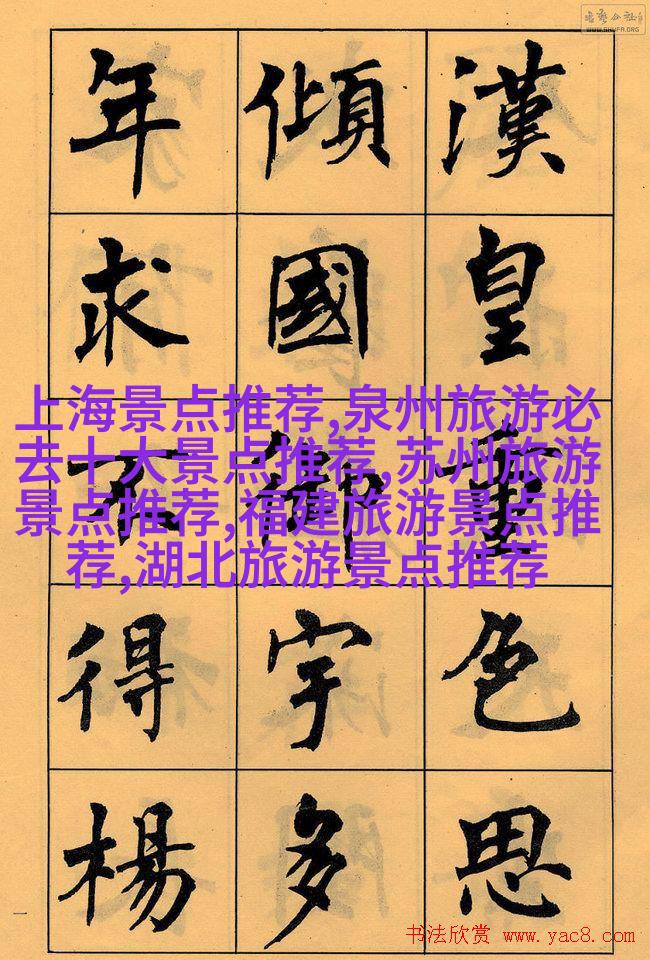 書藝公社
www.SHUFA.ORG
漢皇重色思
傾國御宇多
年求不得楊
上海景点推荐,泉州旅游必
去十大景点推荐,苏州旅游
景点推荐,福建旅游景点推
荐,湖北旅游景点推荐
一
书法欣赏 www.yac8.com